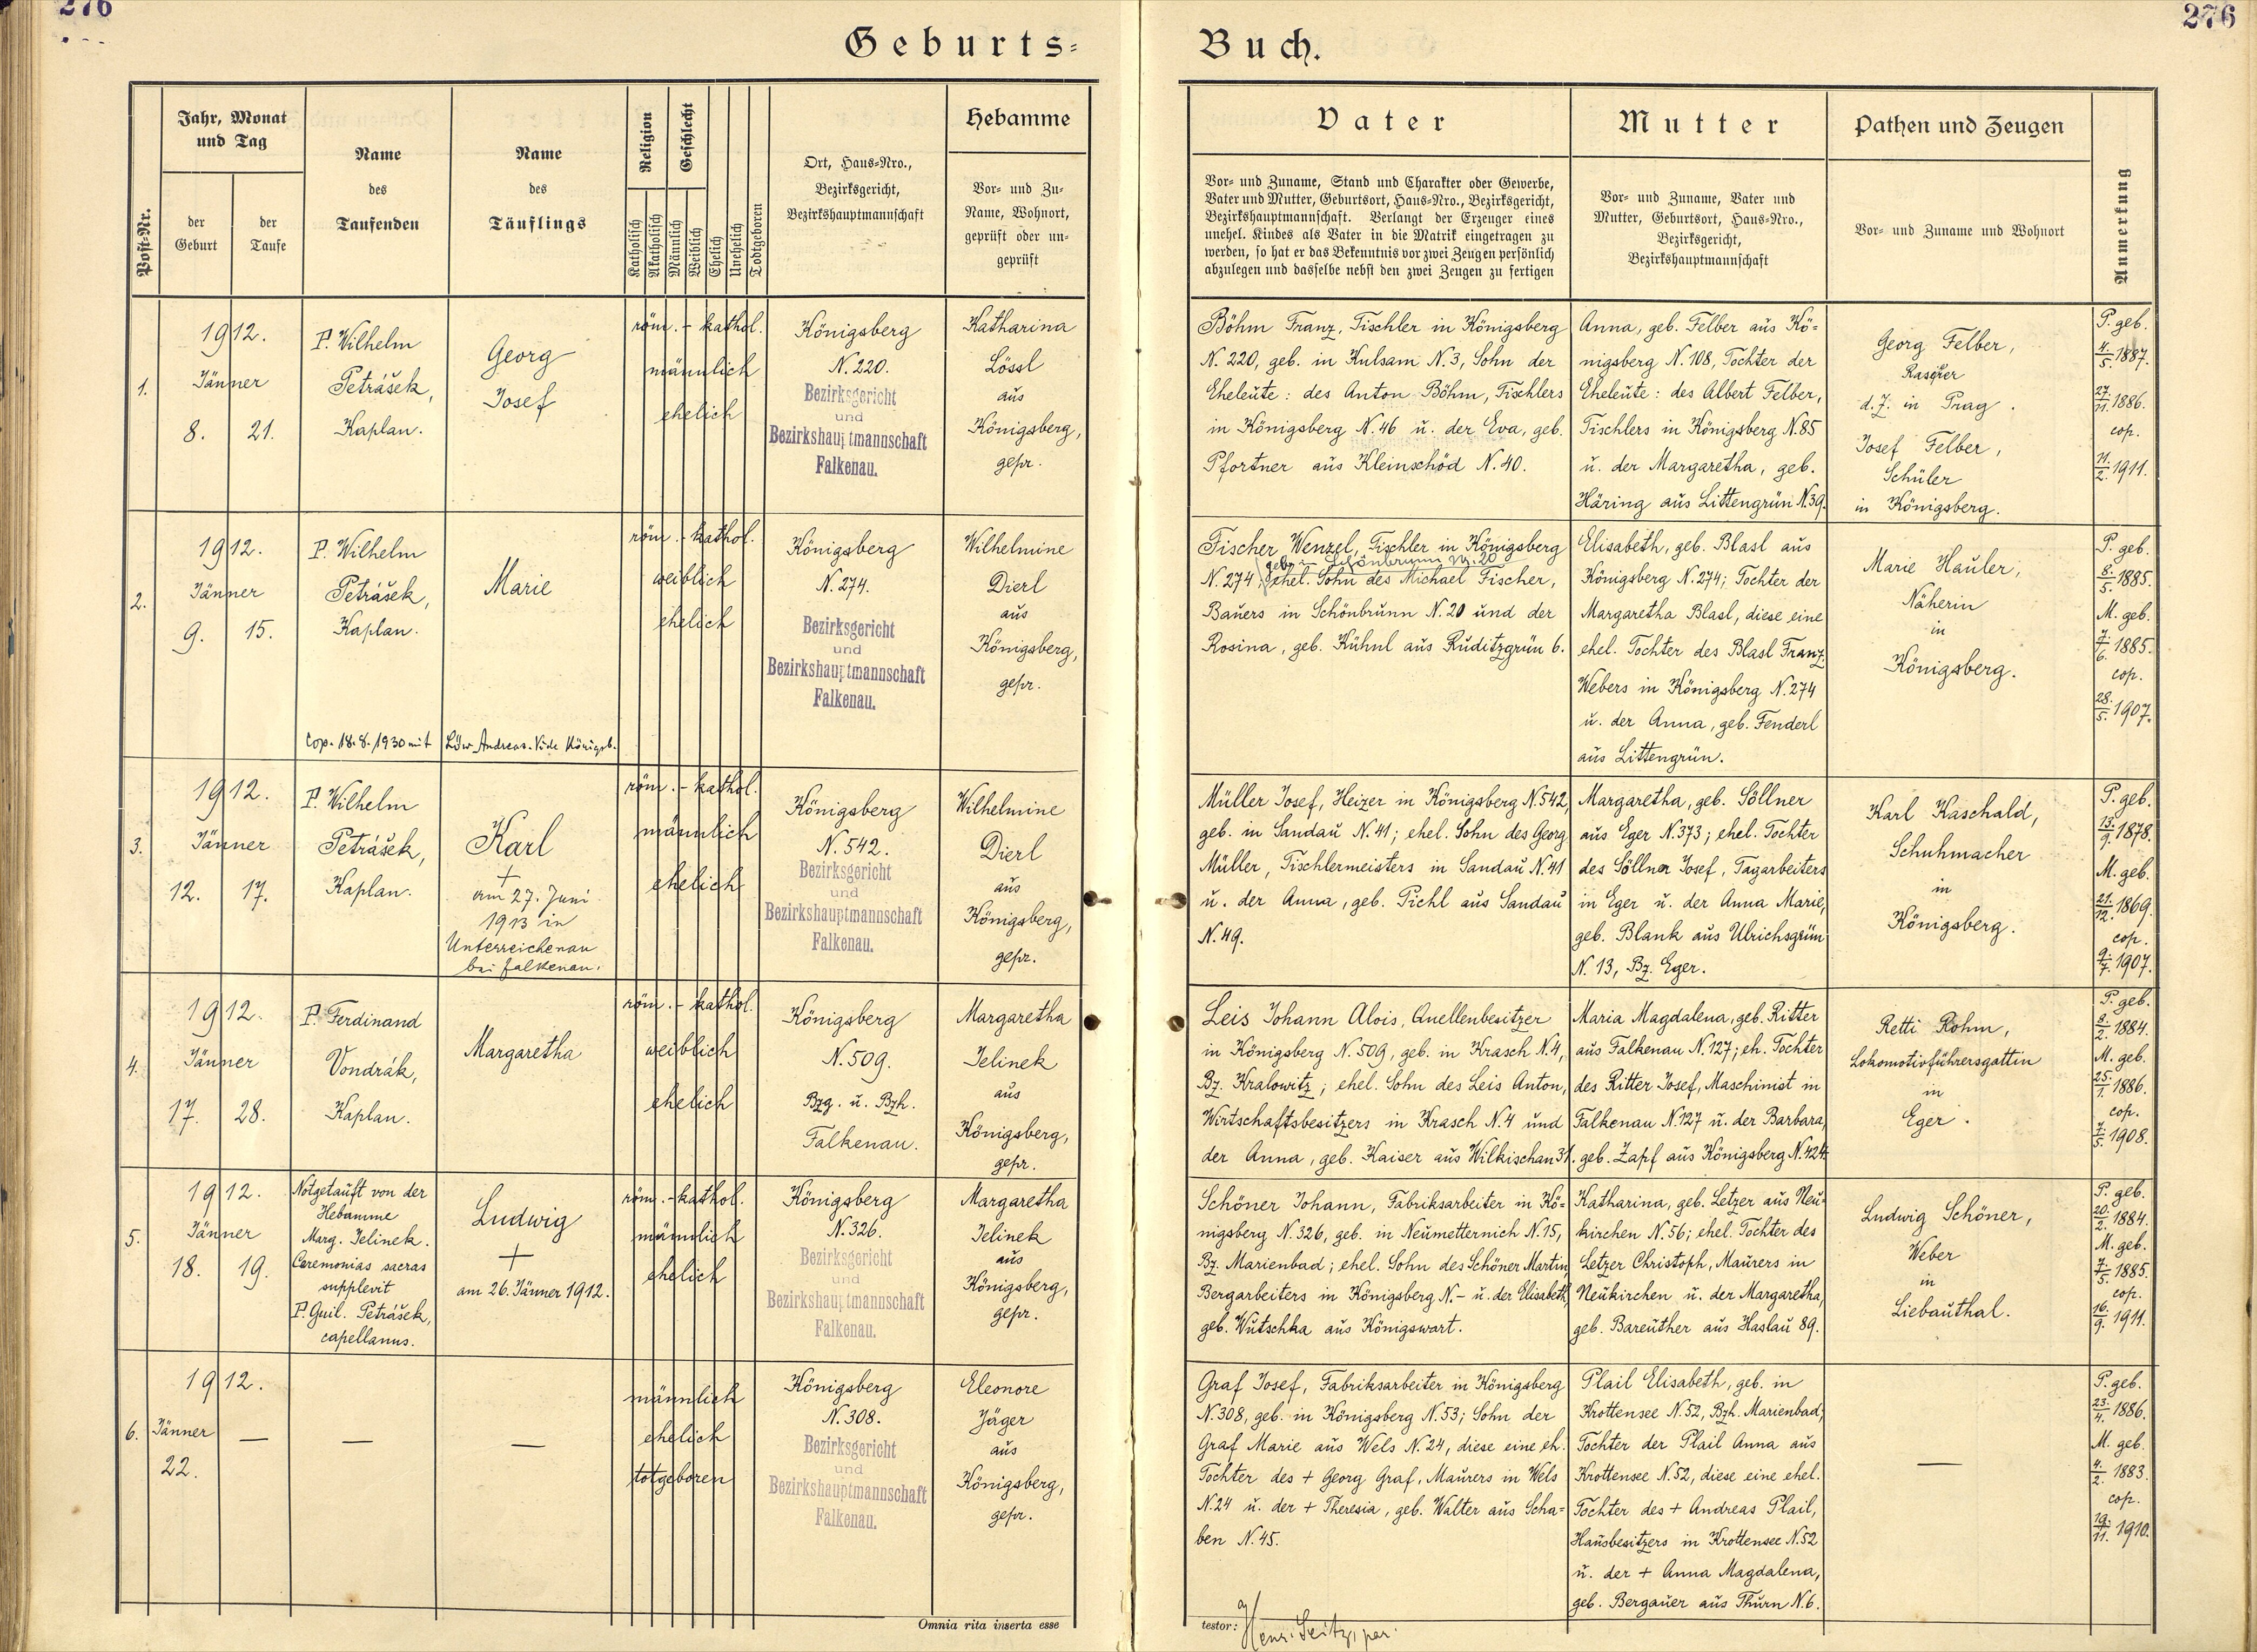 276
276
Geburts=
Buch.
Post-Nr.
Jahr, Monat
und Tag
der
Geburt
der
Taufe
Name
des
Taufenden
Name
des
Täuflings
Religion
Geschlecht
Katholisch
Akatholisch
Männlich
Weiblich
Ehelich
Unehelich
Todtgeboren
Ort, Haus-Nro.,
Bezirksgericht,
Bezirkshauptmannschaft
Hebamme
Vor- und Zu-
Name, Wohnort,
geprüft oder un-
geprüft
Vater
Vor- und Zuname, Stand und Charakter oder Gewerbe,
Vater und Mutter, Geburtsort, Haus-Nro., Bezirksgericht,
Bezirkshauptmannschaft. Verlangt der Erzeuger eines
unehel. Kindes als Vater in die Matrik eingetragen zu
werden, so hat er das Bekenntnis vor zwei Zeugen persönlich
abzulegen und dasselbe nebst den zwei Zeugen zu fertigen
Mutter
Vor- und Zuname, Vater und
Mutter, Geburtsort, Haus-Nro.,
Bezirksgericht,
Bezirkshauptmannschaft
Pathen und Zeugen
Vor- und Zuname und Wohnort
Anmerkung
1.
1912.
Jänner
8. 21.
P. Wilhelm
Petrášek,
Kaplan.
Georg
Josef
röm.-kathol.
männlich
ehelich
Königsberg
N. 220.
Bezirksgericht
und
Bezirkshauptmannschaft
Falkenau.
Katharina
Lössl
aus
Königsberg,
gepr.
Böhm Franz, Tischler in Königsberg
N. 220, geb. in Kulsam N. 3, Sohn der
Eheleute: des Anton Böhm, Tischlers
in Königsberg N. 46 u. der Eva, geb.
Pfortner aus Kleinschöd N. 40.
Anna, geb. Felber aus Kö=
nigsberg N. 108, Tochter der
Eheleute: des Albert Felber,
Tischlers in Königsberg N. 85
u. der Margaretha, geb.
Häring aus Littengrün N. 39.
Georg Felber,
d. Z. in Prag.
Josef Felber,
Schüler
in Königsberg.
P. geb.
4./5. 1887.
27./11. 1886.
cop.
11./2. 1911.
2.
1912.
Jänner
9. 15.
P. Wilhelm
Petrášek,
Kaplan.
Marie
cop. 18.8.1930 mit Löw Andreas. Vide Königsb.
röm.-kathol.
weiblich
ehelich
Königsberg
N. 274.
Bezirksgericht
und
Bezirkshauptmannschaft
Falkenau.
Wilhelmine
Dierl
aus
Königsberg,
gepr.
Fischer Wenzel, Tischler in Königsberg
geb. in Schönbrunn N. 20
N. 274, ehel. Sohn des Michael Fischer,
Bauers in Schönbrunn N. 20 und der
Rosina, geb. Kühnl aus Ruditzgrün 6.
Elisabeth, geb. Blasl aus
Königsberg N. 274; Tochter der
Margaretha Blasl, diese eine
ehel. Tochter des Blasl Franz,
Webers in Königsberg N. 274
u. der Anna, geb. Fenderl
aus Littengrün.
Marie Hauler,
Näherin
in
Königsberg.
P. geb.
8./5. 1885.
M. geb.
7./6. 1885.
cop.
28./5. 1907.
3.
1912.
Jänner
12. 17.
P. Wilhelm
Petrášek,
Kaplan.
Karl
+
am 27. Juni
1913 in
Unterreichenau
bei Falkenau.
röm.-kathol.
männlich
ehelich
Königsberg
N. 542.
Bezirksgericht
und
Bezirkshauptmannschaft
Falkenau.
Wilhelmine
Dierl
aus
Königsberg,
gepr.
Müller Josef, Heizer in Königsberg N. 542,
geb. in Sandau N. 41; ehel. Sohn des Georg
Müller, Tischlermeisters in Sandau N. 41
u. der Anna, geb. Pichl aus Sandau
N. 49.
Margaretha, geb. Söllner
aus Eger N. 373; ehel. Tochter
des Söllner Josef, Tagarbeiters
in Eger u. der Anna Marie,
geb. Blank aus Ulrichsgrün
N. 13, Bz. Eger.
Karl Kaschald,
Schuhmacher
in
Königsberg.
P. geb.
13./9. 1878.
M. geb.
21./12. 1869.
cop.
9./7. 1907.
4.
1912.
Jänner
17. 28.
P. Ferdinand
Vondrák,
Kaplan.
Margaretha
röm.-kathol.
weiblich
ehelich
Königsberg
N. 509.
Bzg. u. Bzh.
Falkenau.
Margaretha
Jelinek
aus
Königsberg,
gepr.
Leis Johann Alois, Quellenbesitzer
in Königsberg N. 509, geb. in Krasch N. 4,
Bz. Kralowitz; ehel. Sohn des Leis Anton,
Wirtschaftsbesitzers in Krasch N. 4 und
der Anna, geb. Kaiser aus Wilkischan 31.
Maria Magdalena, geb. Ritter
aus Falkenau N. 127; eh. Tochter
des Ritter Josef, Maschinist in
Falkenau N. 127 u. der Barbara,
geb. Zapf aus Königsberg N. 424.
Retti Rohm,
Lokomotivführersgattin
in
Eger.
P. geb.
8./2. 1884.
M. geb.
25./1. 1886.
cop.
7./5. 1908.
5.
1912.
Jänner
18. 19.
Notgetauft von der
Hebamme
Marg. Jelinek.
Ceremonias sacras
supplevit
P. Guil. Petrášek,
capellanus.
Ludwig
+
am 26. Jänner 1912.
röm.-kathol.
männlich
ehelich
Königsberg
N. 326.
Bezirksgericht
und
Bezirkshauptmannschaft
Falkenau.
Margaretha
Jelinek
aus
Königsberg,
gepr.
Schöner Johann, Fabriksarbeiter in Kö=
nigsberg N. 326, geb. in Neumetternich N. 15,
Bz. Marienbad; ehel. Sohn des Schöner Martin,
Bergarbeiters in Königsberg N. – u. der Elisabeth,
geb. Wutschka aus Königswart.
Katharina, geb. Letzer aus Neu=
kirchen N. 56; ehel. Tochter des
Letzer Christoph, Maurers in
Neukirchen u. der Margaretha,
geb. Bareuther aus Haslau 89.
Ludwig Schöner,
Weber
in
Liebauthal.
P. geb.
20./2. 1884.
M. geb.
7./5. 1885.
cop.
16./9. 1911.
6.
1912.
Jänner
22.
— — —
männlich
ehelich
totgeboren
Königsberg
N. 308.
Bezirksgericht
und
Bezirkshauptmannschaft
Falkenau.
Eleonore
Jäger
aus
Königsberg,
gepr.
Graf Josef, Fabriksarbeiter in Königsberg
N. 308, geb. in Königsberg N. 53; Sohn der
Graf Marie aus Wels N. 24, diese eine eh.
Tochter des + Georg Graf, Maurers in Wels
N. 24 u. der + Theresia, geb. Walter aus Scha=
ben N. 45.
Plail Elisabeth, geb. in
Krottensee N. 52, Bzh. Marienbad,
Tochter der Plail Anna aus
Krottensee N. 52, diese eine ehel.
Tochter des + Andreas Plail,
Hausbesitzers in Krottensee N. 52
u. der + Anna Magdalena,
geb. Bergauer aus Thurn N. 6.
—
P. geb.
23./4. 1886.
M. geb.
4./2. 1883.
cop.
19./11. 1910.
Omnia rita inserta esse
testor: Henr. Seitz, par.